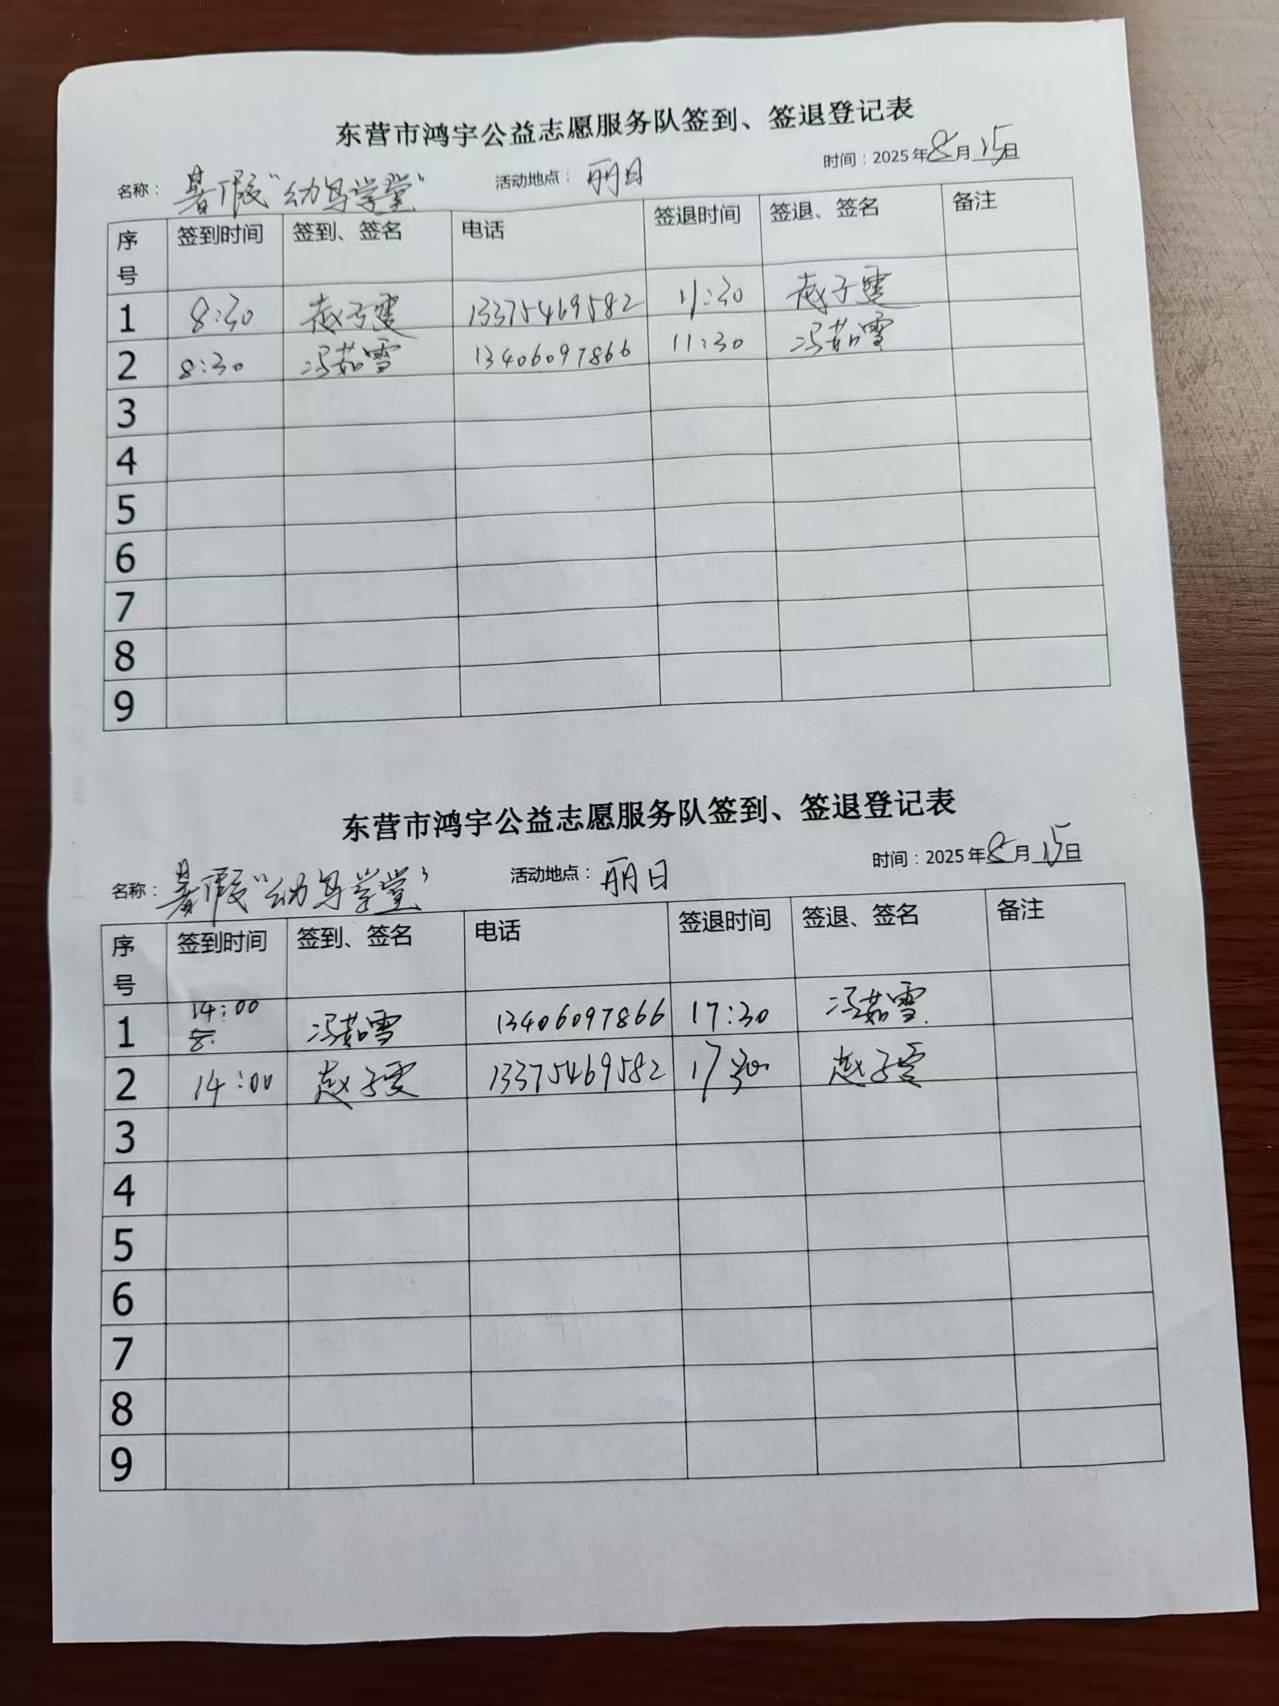 东营市鸿宇公益志愿服务队签到、签退登记表
名称：暑假“幼鸟学堂” 活动地点：丽日 时间：2025年8月15日
序号 签到时间 签到、签名 电话 签退时间 签退、签名 备注
1 8:30 赵子雯 13375469582 11:30 赵子雯
2 8:30 冯茹雪 13406097866 11:30 冯茹雪
3
4
5
6
7
8
9
东营市鸿宇公益志愿服务队签到、签退登记表
名称：暑假“幼鸟学堂” 活动地点：丽日 时间：2025年8月15日
序号 签到时间 签到、签名 电话 签退时间 签退、签名 备注
1 14:00 冯茹雪 13406097866 17:30 冯茹雪
2 14:00 赵子雯 13375469582 17:30 赵子雯
3
4
5
6
7
8
9